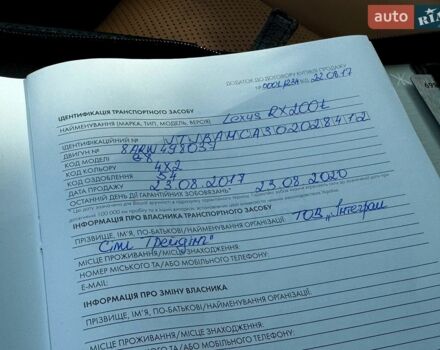 auto RIA
ДОДАТОК ДО ДОГОВОРУ КУПІВЛІ-ПРОДАЖУ
ВІД 22.08.17
ІДЕНТИФІКАЦІЯ ТРАНСПОРТНОГО ЗАСОБУ
НАЙМЕНУВАННЯ (МАРКА, ТИП, МОДЕЛЬ, ВЕРСІЯ) Lexus RX200t
ІДЕНТИФІКАЦІЙНИЙ № JTJBAMCA302028712
ДВИГУН № 8ARW498037
КОД МОДЕЛІ
КОД КОЛЬОРУ 4X2
КОД ОЗДОБЛЕННЯ
ДАТА ПРОДАЖУ 23.08.2017
ОСТАННІЙ ДЕНЬ ДІЇ ГАРАНТІЙНИХ ЗОБОВ'ЯЗАНЬ* 23.08.2020
ІНФОРМАЦІЯ ПРО ВЛАСНИКА ТРАНСПОРТНОГО ЗАСОБУ
ПРІЗВИЩЕ, ІМ'Я, ПО-БАТЬКОВІ/НАЙМЕНУВАННЯ ОРГАНІЗАЦІЇ: ТОВ „Інтеграл
МІСЦЕ ПРОЖИВАННЯ/МІСЦЕ ЗНАХОДЖЕННЯ:
НОМЕР МІСЬКОГО ТА/АБО МОБІЛЬНОГО ТЕЛЕФОНУ:
E-MAIL:
ІНФОРМАЦІЯ ПРО ЗМІНУ ВЛАСНИКА
ПРІЗВИЩЕ, ІМ'Я, ПО-БАТЬКОВІ/НАЙМЕНУВАННЯ ОРГАНІЗАЦІЇ:
МІСЦЕ ПРОЖИВАННЯ/МІСЦЕ ЗНАХОДЖЕННЯ:
НОМЕР МІСЬКОГО ТА/АБО МОБІЛЬНОГО ТЕЛЕФОНУ: